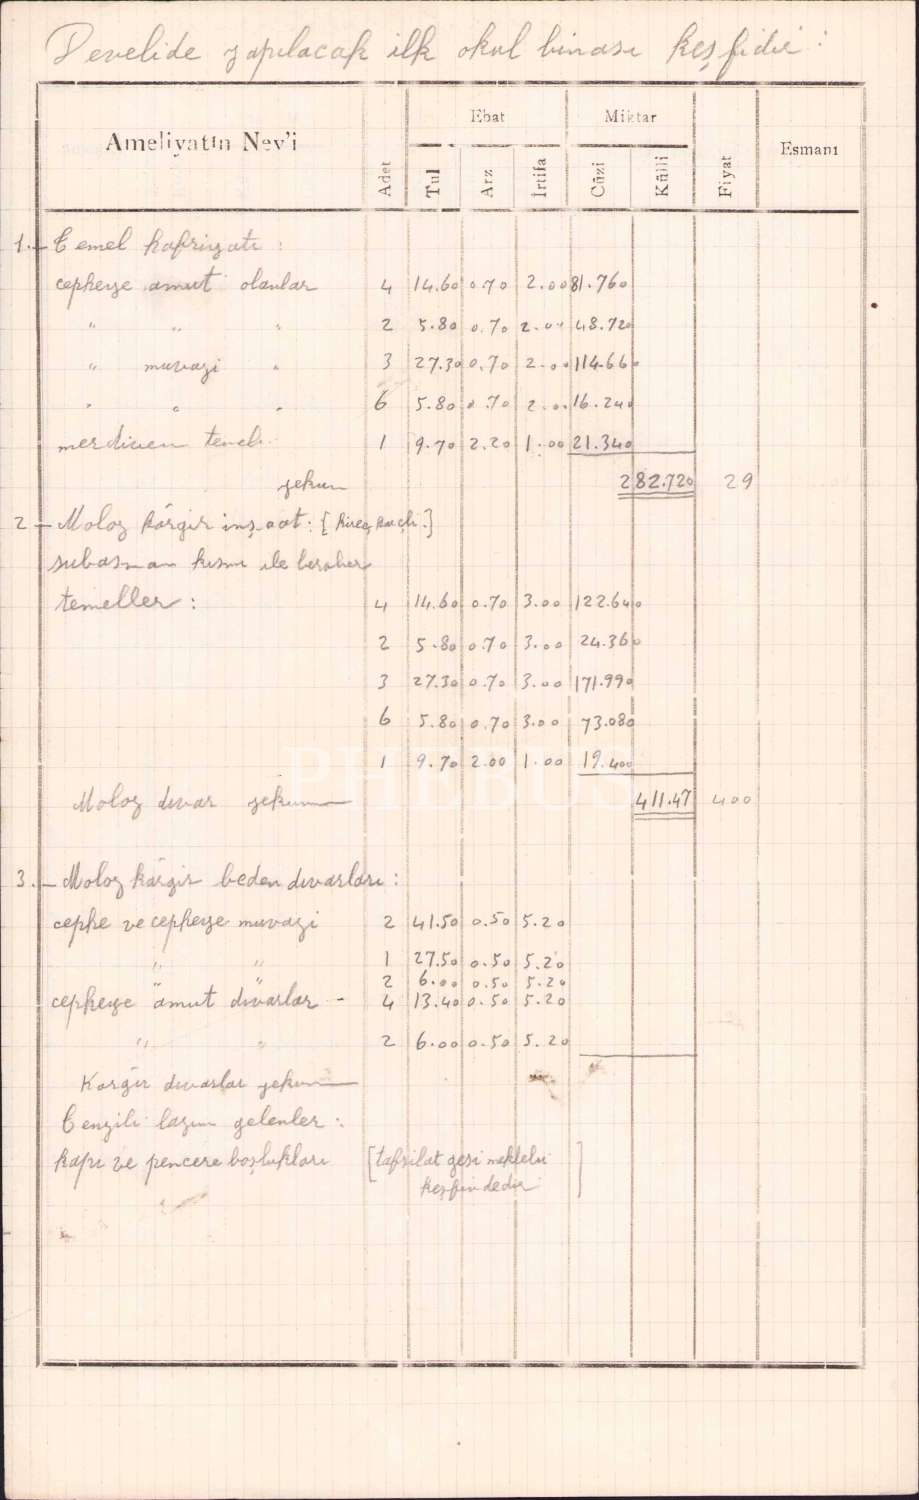 Develide yapılacak ilk okul binası keşfidir :
Ameliyatın Nev'i Adet Ebat Tul Arz İrtifa Miktar Cüzi Külli Fiyat Esmanı
1.- Temel hafriyatı :
cepheye amut olanlar 4 14.60 0.70 2.00 81.760
" " " 2 5.80 0.70 2.00 48.720
" muvazi " 3 27.30 0.70 2.00 114.660
" " " 6 5.80 0.70 2.00 16.240
merdiven temeli 1 9.70 2.20 1.00 21.340
yekun 282.720 29
2 - Moloz kârgir inşaat : [kireç harçlı.]
subasman kısmı ile beraber
temeller : 4 14.60 0.70 3.00 122.640
2 5.80 0.70 3.00 24.360
3 27.30 0.70 3.00 171.990
6 5.80 0.70 3.00 73.080
1 9.70 2.00 1.00 19.400
Moloz duvar yekunu 411.47 400
3.- Moloz kârgir beden duvarları :
cephe ve cepheye muvazi 2 41.50 0.50 5.20
" " 1 27.50 0.50 5.20
" " 2 6.00 0.50 5.20
cepheye amut duvarlar - 4 13.40 0.50 5.20
" " 2 6.00 0.50 5.20
Kârgir duvarlar yekunu
Tenzili lazım gelenler :
kapı ve pencere boşlukları [tafsilat gesi mektebi
keşfindedir ]
PHEBUS